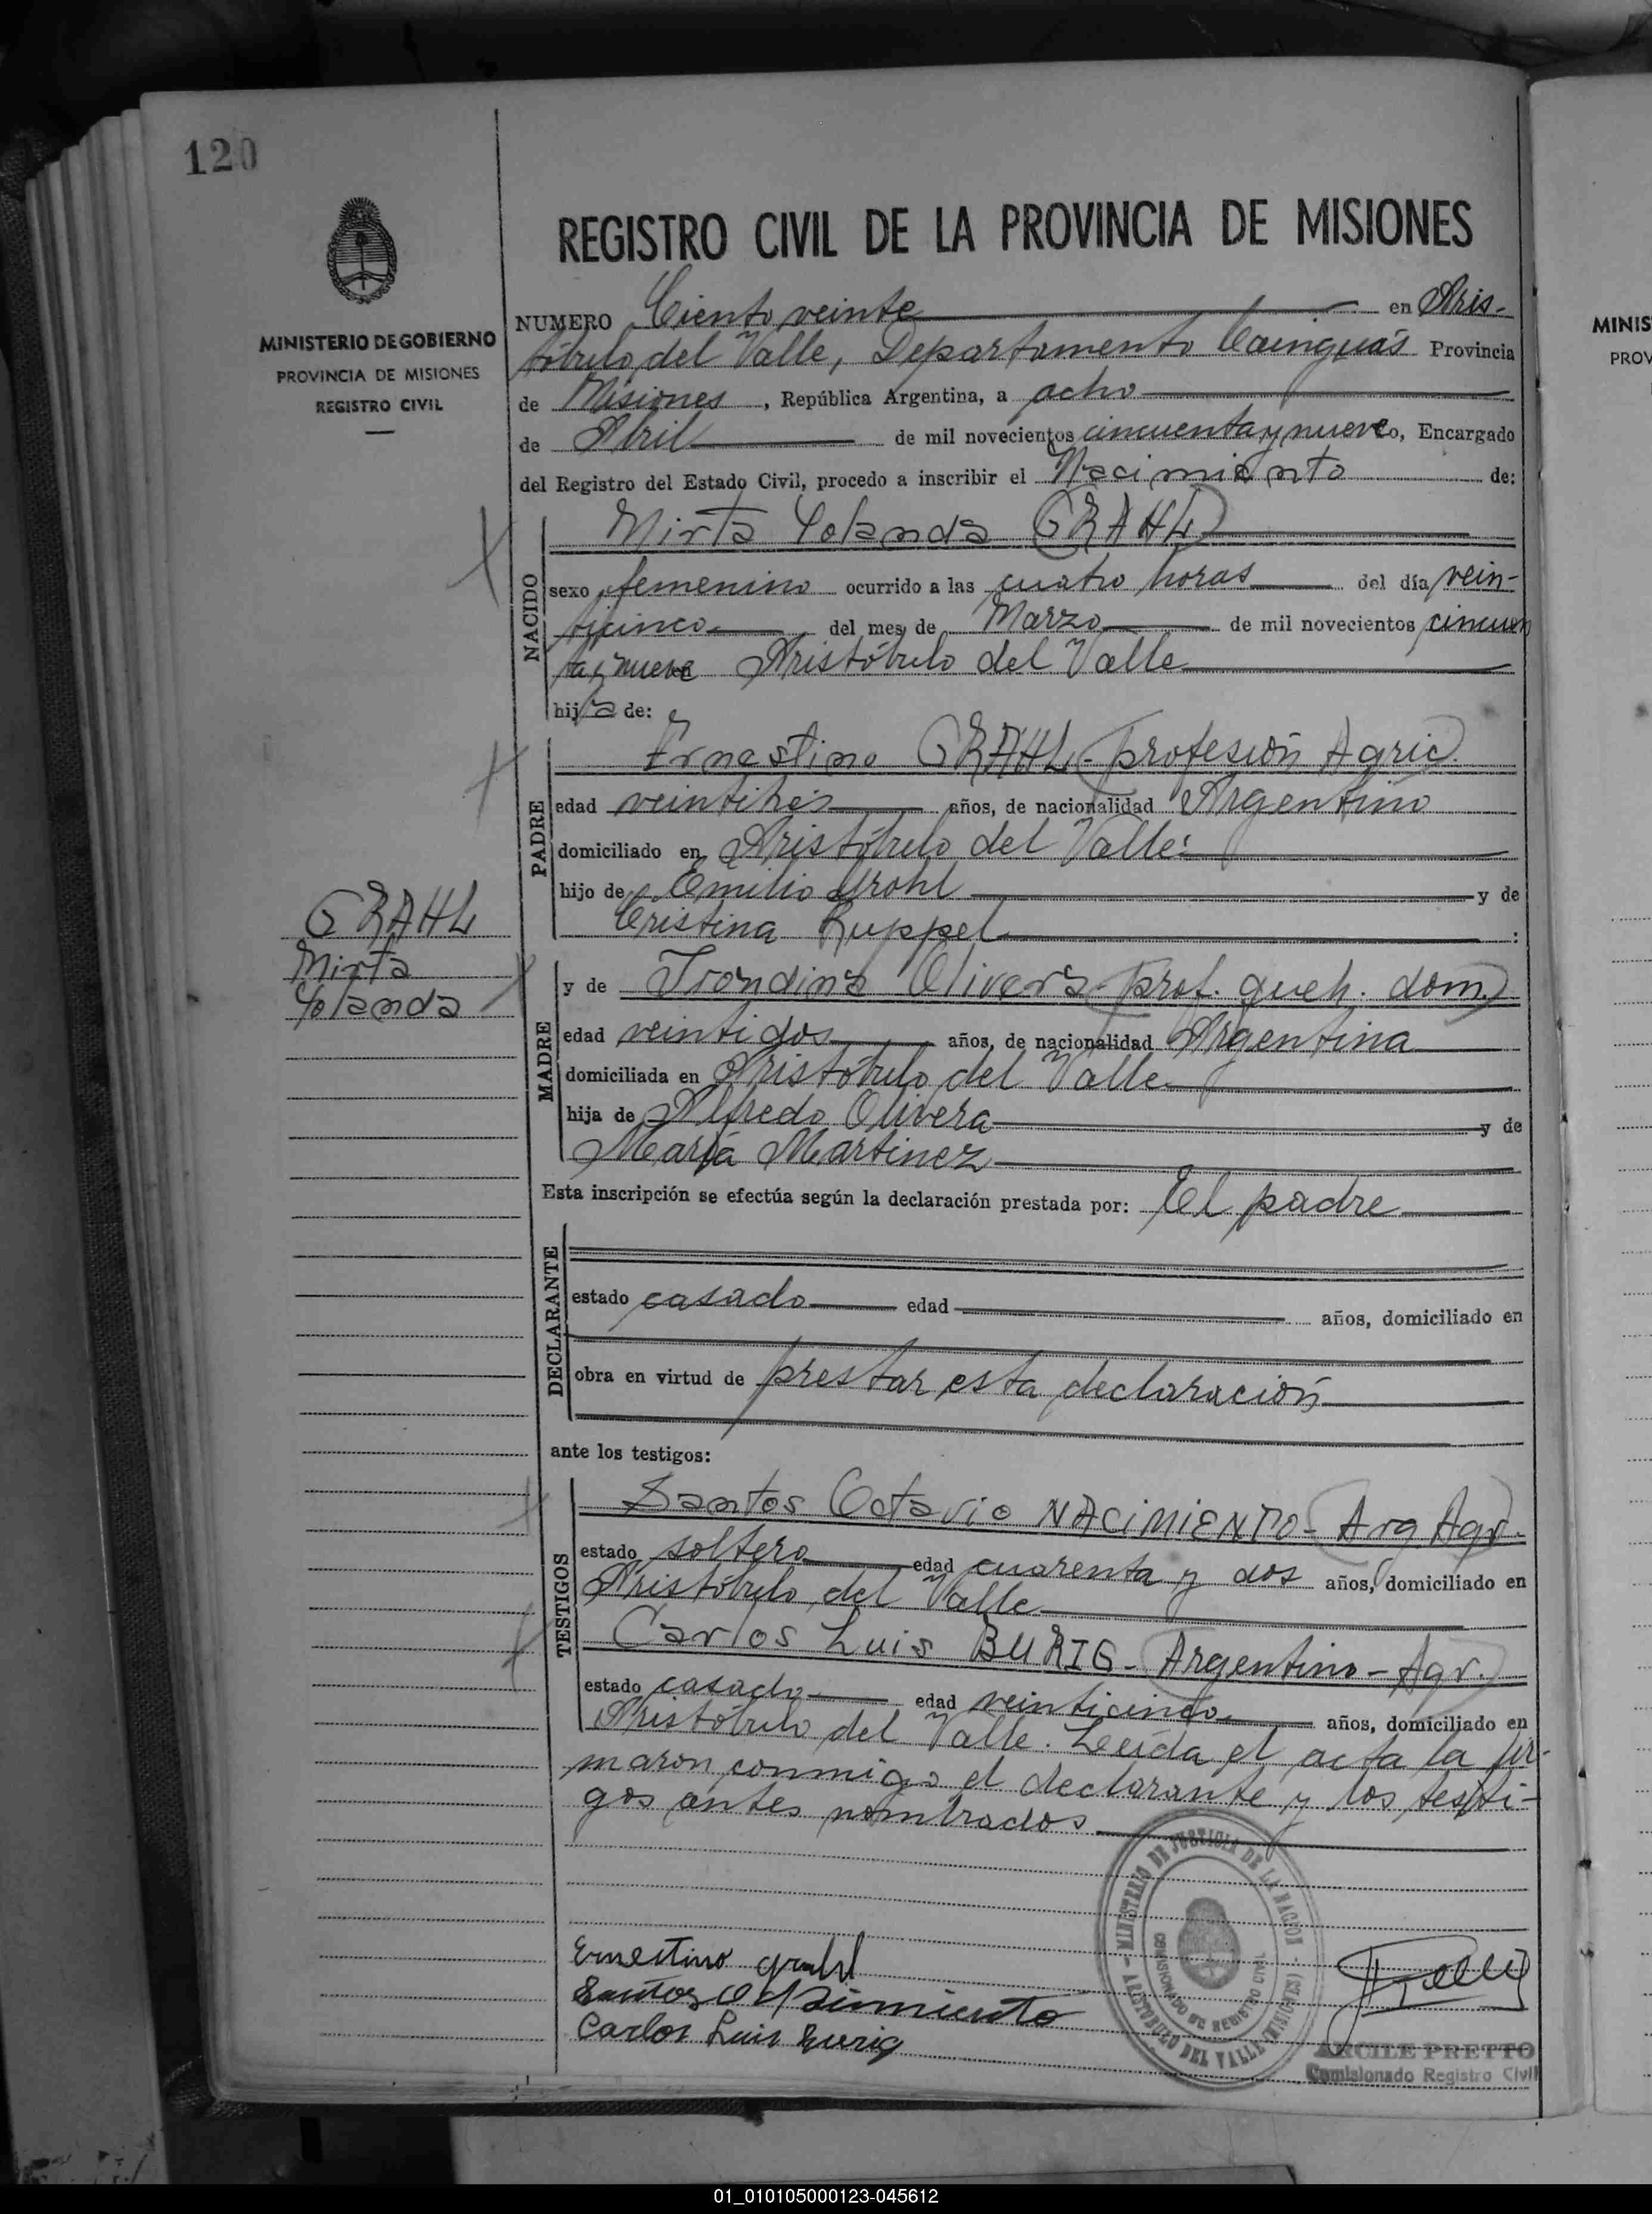 120
MINISTERIO DE GOBIERNO
PROVINCIA DE MISIONES
REGISTRO CIVIL
REGISTRO CIVIL DE LA PROVINCIA DE MISIONES
NUMERO Ciento veinte en Aris-
tóbulo del Valle, Departamento Cainguás Provincia
de Misiones, República Argentina, a ocho
de Abril de mil novecientos cincuenta y nueve, Encargado
del Registro del Estado Civil, procedo a inscribir el Nacimiento de:
NACIDO
Mirta Yolanda (GRAHL)
sexo femenino ocurrido a las cuatro horas del día vein-
ticinco del mes de Marzo de mil novecientos cincuen
ta y nueve Aristóbulo del Valle
hija de:
PADRE
Ernestino GRAHL-(profesión Agric.
edad veintitrés años, de nacionalidad Argentino
domiciliado en Aristóbulo del Valle:
hijo de Emilio Grahl y de
Cristina Ruppel :
GRAHL
Mirta
Yolanda
MADRE
y de Olivera-(prof. queh. dom.)
edad veintidos años, de nacionalidad Argentina
domiciliada en Aristóbulo del Valle
hija de Alfredo Olivera y de
María Martinez
Esta inscripción se efectúa según la declaración prestada por: El padre
DECLARANTE
estado casado edad años, domiciliado en
obra en virtud de prestar esta declaración
ante los testigos:
TESTIGOS
Santos Octavio NACIMIENTO-(Arg Agr.
estado soltero edad cuarenta y dos años, domiciliado en
Aristóbulo del Valle
Carlos Luis BURIG-(Argentino-Agr.)
estado casado edad veinticinco años, domiciliado en
Aristóbulo del Valle. Leída el acta la fir-
maron conmigo el declarante y los testi-
gos antes nombrados
MINISTERIO DE JUSTICIA DE LA NACION
COMISIONADO DE REGISTRO CIVIL
ARISTOBULO DEL VALLE (MISIONES)
Ernestino grahl
Santos
Carlos Luis Burig
ARCILE PRETTO
Comisionado Registro Civil
MINIS
PROV
01_010105000123-045612